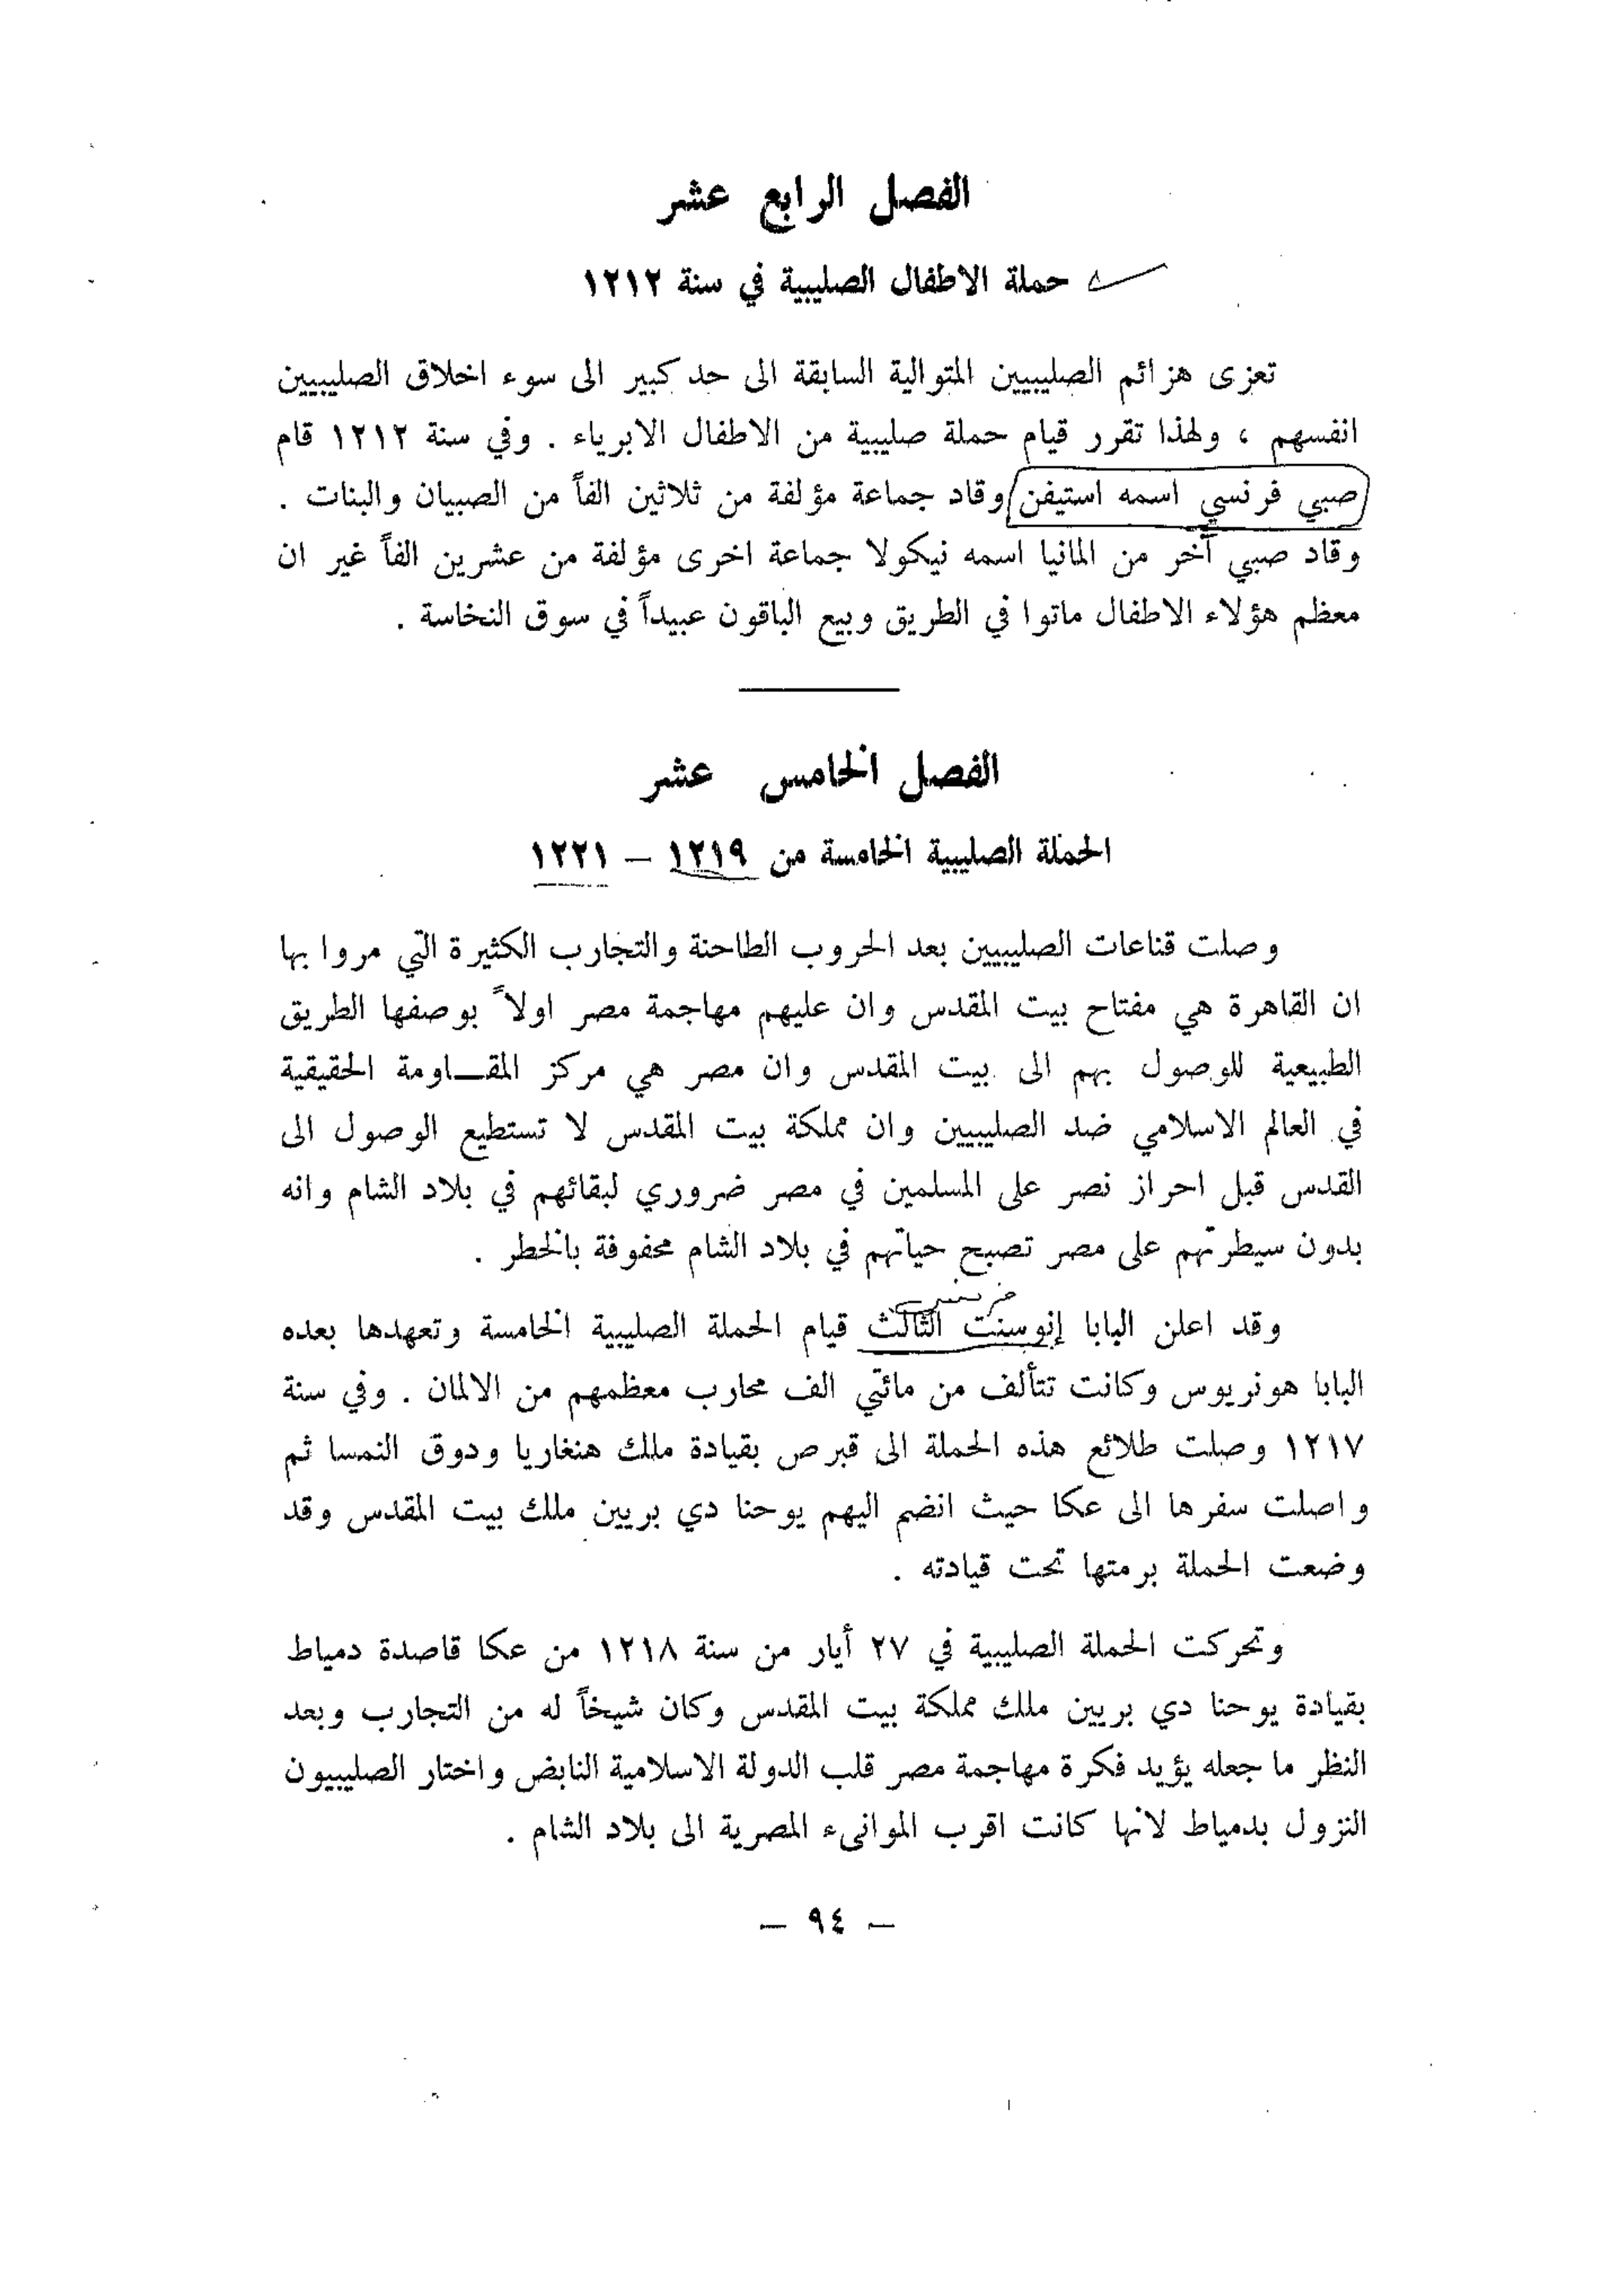 الفصل الرابع عشر
حملة الاطفال الصليبية في سنة ١٢١٢
تعزى هزائم الصليبيين المتوالية السابقة الى حد كبير الى سوء اخلاق الصليبيين
انفسهم ، ولهذا تقرر قيام حملة صليبية من الاطفال الابرياء . وفي سنة ١٢١٢ قام
صبي فرنسي اسمه استيفن وقاد جماعة مؤلفة من ثلاثين الفاً من الصبيان والبنات .
وقاد صبي آخر من المانيا اسمه نيكولا جماعة اخرى مؤلفة من عشرين الفاً غير ان
معظم هؤلاء الاطفال ماتوا في الطريق وبيع الباقون عبيداً في سوق النخاسة .
الفصل الخامس عشر
الحملة الصليبية الخامسة من ١٢١٩ – ١٢٢١
وصلت قناعات الصليبيين بعد الحروب الطاحنة والتجارب الكثيرة التي مروا بها
ان القاهرة هي مفتاح بيت المقدس وان عليهم مهاجمة مصر اولاً بوصفها الطريق
الطبيعية للوصول بهم الى بيت المقدس وان مصر هي مركز المقـاومة الحقيقية
في العالم الاسلامي ضد الصليبيين وان مملكة بيت المقدس لا تستطيع الوصول الى
القدس قبل احراز نصر على المسلمين في مصر ضروري لبقائهم في بلاد الشام وانه
بدون سيطرتهم على مصر تصبح حياتهم في بلاد الشام محفوفة بالخطر .
وقد اعلن البابا إنوسنت الثالث قيام الحملة الصليبية الخامسة وتعهدها بعده
البابا هونريوس وكانت تتألف من مائتي الف محارب معظمهم من الالمان . وفي سنة
١٢١٧ وصلت طلائع هذه الحملة الى قبرص بقيادة ملك هنغاريا ودوق النمسا ثم
واصلت سفرها الى عكا حيث انضم اليهم يوحنا دي بريين ملك بيت المقدس وقد
وضعت الحملة برمتها تحت قيادته .
وتحركت الحملة الصليبية في ٢٧ أيار من سنة ١٢١٨ من عكا قاصدة دمياط
بقيادة يوحنا دي بريين ملك مملكة بيت المقدس وكان شيخاً له من التجارب وبعد
النظر ما جعله يؤيد فكرة مهاجمة مصر قلب الدولة الاسلامية النابض واختار الصليبيون
النزول بدمياط لانها كانت اقرب الموانىء المصرية الى بلاد الشام .
– ٩٤ –